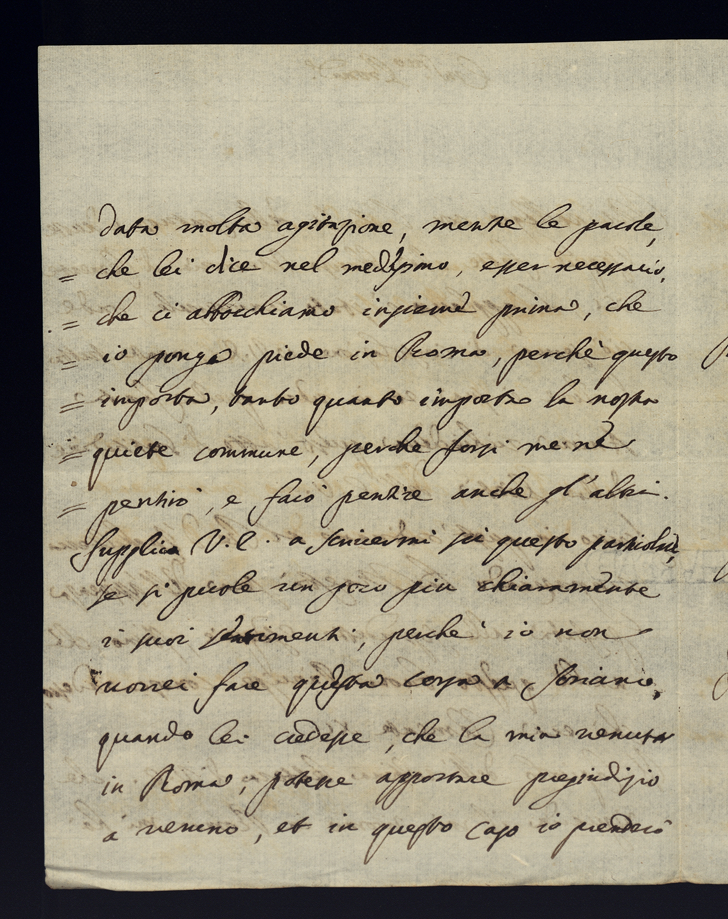 data molta agitazione, mentre le parole,
= che lei dice nel med.simo, esser necessario,
= che ci abbocchiamo insieme prima, che
= io ponga piede in Roma, perchè questo
= importa, tanto quanto importa la nostra
= quiete commune, perche forsi me nè
= pentirò, e farò pentire anche gl'altri.
Supplico V.E. a scrivermi su questo particolare,
se si puole un poco piu chiaramente
i suoi sentimenti, perche io non
vorrei fare questa corsa a Soriano,
quando lei credesse, che la mia venuta
in Roma, potesse apportare pregiudizio
à veruno, et in questo caso io prenderò